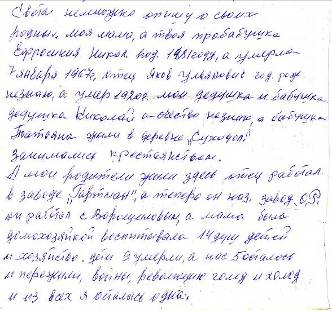 Света немножко опишу о своих
родных. моя мама, а твоя прабабушка
Ефросиния Никол. род. 1881 года, а умерла
7 января 1967г, отец Яков Ульянович год рожд
незнаю, а умер 1920г. мои дедушка и бабушка
дедушка Николай а отчество незнаю, а бабушка
Татьяна жили в деревне „Суходол"
занимались крестьянством.
А мои родители жили здесь отец работал
в заводе „Гартман", а теперь он наз. завод О.Р.
он работал с Ворошиловым, а мама была
домохозяйкой воспитывала 14 душ детей
и хозяйство. дети 9 умерли, а нас 5 осталось
и пережили, войны, революцию голод и холод
и из всех я осталась одна.